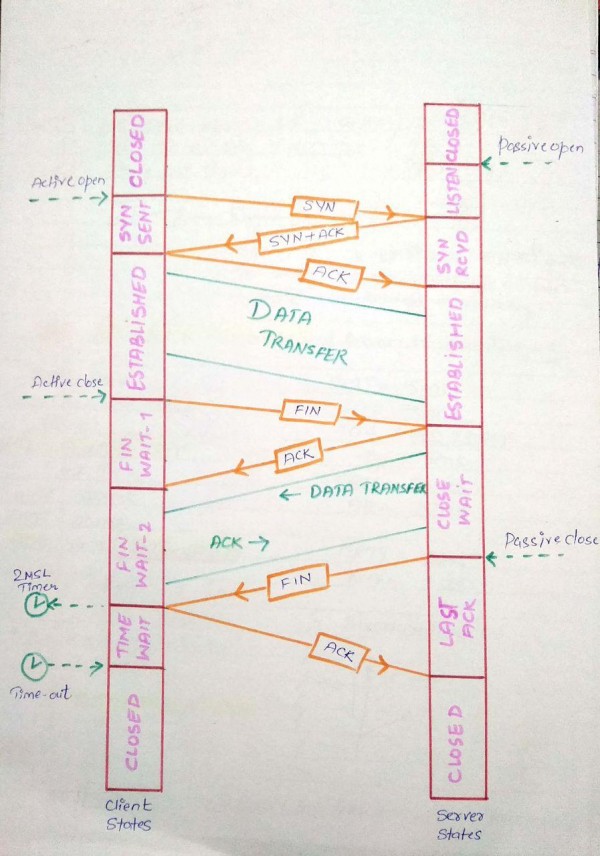 CLOSED
CLOSED
Passive open
Active open
LISTEN
SYN
SYN
SENT
SYN+ACK
SYN
RCVD
ACK
DATA
TRANSFER
ESTABLISHED
ESTABLISHED
Active close
FIN
FIN
WAIT-1
ACK
CLOSE
WAIT
← DATA TRANSFER
ACK →
FIN
WAIT-2
Passive close
FIN
2MSL
Timer
TIME
WAIT
LAST
ACK
ACK
Time-out
CLOSED
CLOSED
Client
States
Server
States